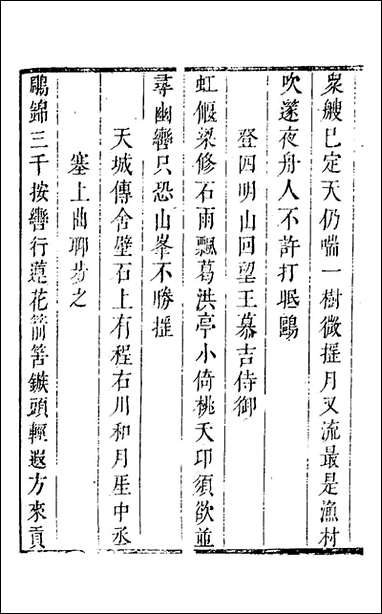 衆艘已定天仍喘一樹微搖月又流最是漁村
吹遂夜舟人不許打眠鷗
登四明山回望王慕吉侍御
虹偃梁修石雨飄葛洪亭小倚桃夭卬須欲並
尋幽轡只恐山峯不勝搖
天城傳舍壁石上有程右川和月厓中丞
塞上曲聊步之
鵰錦三千按轡行蓮花箭筈鏃頭輕遐方來貢